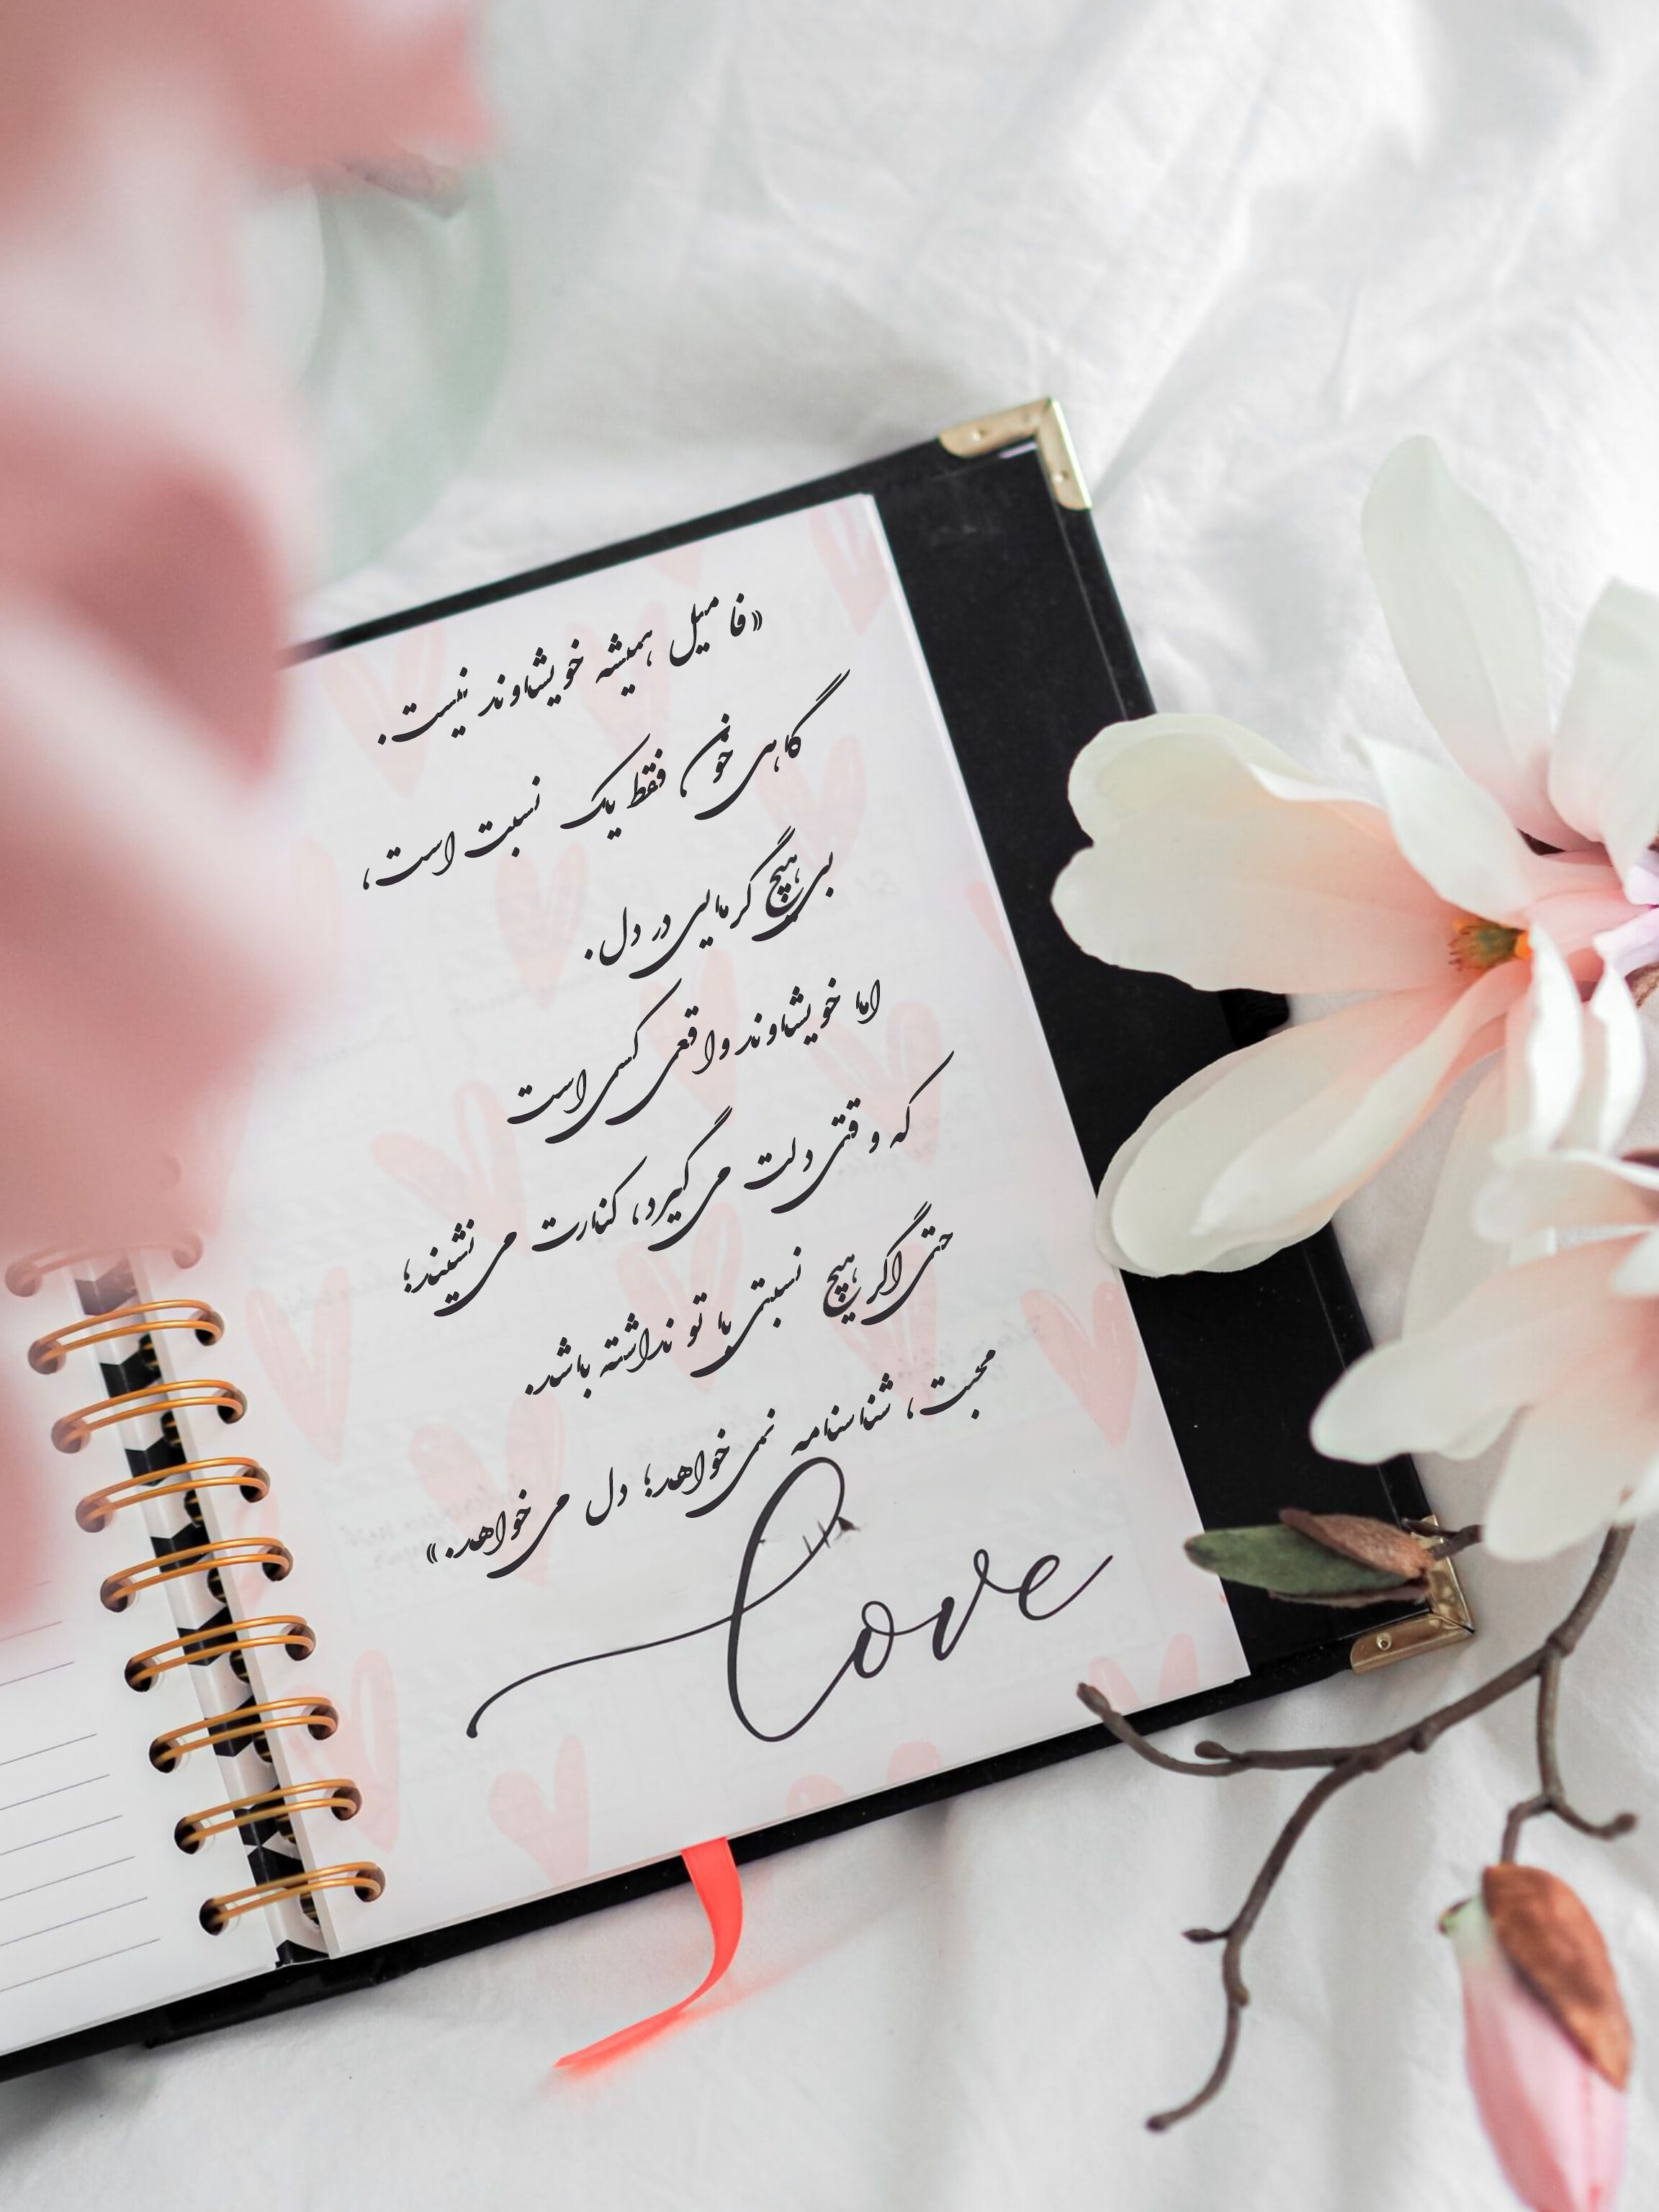 «فامیل همیشه خویشاوند نیست.
گاهی خون فقط یک نسبت است،
بی‌هیچ گرمایی در دل.
اما خویشاوند واقعی کسی است
که وقتی دلت می‌گیرد، کنارت می‌نشیند؛
حتی اگر هیچ نسبتی با تو نداشته باشد.
محبت، شناسنامه نمی‌خواهد؛ دل می‌خواهد.»
Love